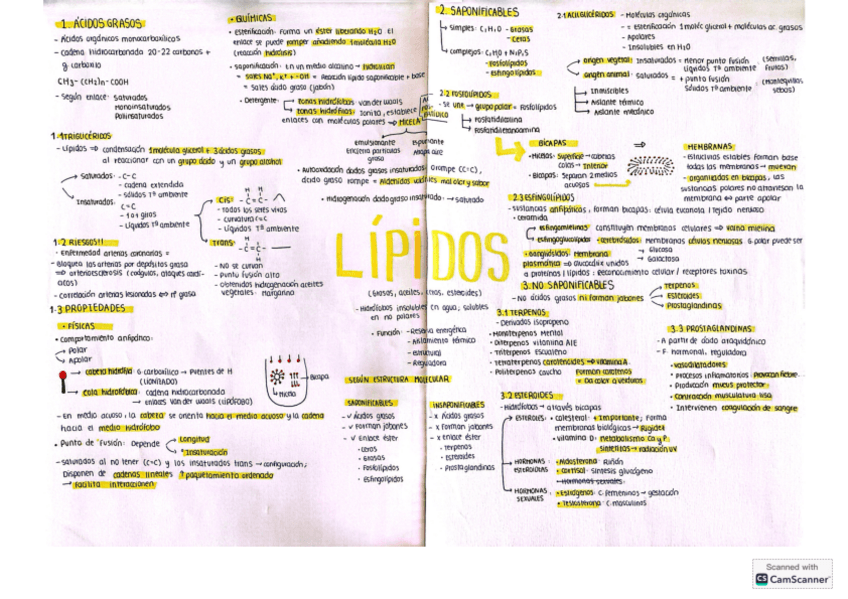 1. ÁCIDOS GRASOS
- Ácidos orgánicos monocarboxílicos
- Cadena hidrocarbonada 20-22 carbonos +
g carboxilo
CH3 - (CH2)n - COOH
- Según enlace: Saturados
Monoinsaturados
Poliinsaturados
1.1 TRIGLICÉRIDOS
- Lípidos ⇒ condensación 1 molécula glicerol + 3 ácidos grasos
al reaccionar con un grupo ácido y un grupo alcohol
Saturados: -C-C
- cadena extendida
- sólidos Tª ambiente
Insaturados:
C=C
- 1 o + giros
- Líquidos Tª ambiente
CIS:
- Todos los seres vivos
- Curvatura C=C
- Líquidos Tª ambiente
TRANS:
- NO se curvan
- Punto fusión alto
- obtenidos hidrogenación aceites
vegetales: Margarina
1.2 RIESGOS!!
- Enfermedad arterias coronarias =
- Bloquea las arterias por depósitos grasa
⇒ arteriosclerosis (coágulos, ataques cardí-
acos)
- Correlación arterias lesionadas ↔ nº grasa
1.3 PROPIEDADES
• FÍSICAS
• Comportamiento anfipático:
Polar
Apolar
cabeza hidrófila: G. carboxílico → Puentes de H
(IONITADO)
Cola hidrofóbica: cadena hidrocarbonada
→ enlaces van der waals (LIPÓFOBO)
Bicapa
Micela
- En medio acuoso: la cabeza se orienta hacia el medio acuoso y la cadena
hacia el medio hidrófobo
• Punto de Fusión: Depende
Longitud
Insaturación
- Saturados al no tener (C=C) y los insaturados trans → configuración;
Disponen de cadenas lineales ↑ paquetamiento ordenado
→ facilita interacciones
• QUÍMICAS
• Esterificación: Forma un éster liberando H2O el
enlace se puede romper añadiendo 1 molécula H2O
(reacción hidrólisis)
• Saponificación: en un medio alcalino → hidrolizan
= sales Na+, K+ + OH- = Reacción lípido saponificable + base
= Sales ácido graso (jabón)
• Detergente:
zonas hidrófobas: van der waals
zonas hidrófilas: Ionita, establece
enlaces con moléculas polares ⇒ MICELA
Emulsionante
Encierra partículas
grasa
Espumante
Atrapa aire
• Autooxidación ácidos grasos insaturados: (rompe C=C),
ácido graso rompe = Aldehídos volátiles mal olor y sabor
• Hidrogenación ácido graso insaturado → saturado
LÍPIDOS
- Hidrófobos insolubles en agua, solubles
en no polares
• Función: - Reserva energética
- Aislamiento térmico
- Estructural
- Reguladora
SEGÚN ESTRUCTURA MOLECULAR
SAPONIFICABLES
- ✓ Ácidos grasos
- ✓ Forman jabones
- ✓ Enlace éster
- Ceras
- Grasas
- Fosfolípidos
- Esfingolípidos
INSAPONIFICABLES
- x Ácidos grasos
- x Forman jabones
- x Enlace éster
- Terpenos
- Esteroides
- Prostaglandinas
2. SAPONIFICABLES
Simples: C, H, O - Grasas
- Ceras
Complejos:
- Fosfolípidos
- Esfingolípidos
2.1 ACILGLICÉRIDOS - Moléculas orgánicas
- = Esterificación 1 moléc glicerol + moléculas ac. grasos
- Apolares
- Insolubles en H2O
origen vegetal: Insaturados = menor punto fusión (semillas,
Líquidos Tª ambiente frutos)
origen animal: Saturados = + punto fusión
Sólidos Tª ambiente
Aislante térmico
Aislante mecánico
2.2 FOSFOLÍPIDOS
- Se une → grupo polar = Fosfolípidos
Fosfatidilcolina
Fosfatidiletanolamina
BICAPAS
- Micelas: Superficie → cabezas
colas → Interior
- Bicapas: Separan 2 medios
acuosos
MEMBRANAS
- Estructuras estables forman base
todas las membranas
- organizados en bicapas, las
sustancias polares no atraviesan la
membrana ↔ parte apolar
2.3 ESFINGOLÍPIDOS
- Sustancias anfipáticas, forman bicapas: célula eucariota / tejido nervioso
- Ceramida
esfingomielinas: constituyen membranas celulares ⇒ vaina mielina
esfingoglucolípidos: •cerebrósidos: Membranas células nerviosas G. polar puede ser
→ Glucosa
→ Galactosa
•Gangliósidos: Membrana
plasmática
a proteínas / lípidos: Reconocimiento celular / receptores toxinas
3. NO SAPONIFICABLES
- NO ácidos grasos ni forman jabones
Terpenos
Esteroides
Prostaglandinas
3.1 TERPENOS
- Derivados isopropeno
• Monoterpenos Mentol
• Diterpenos vitamina A/E
• Triterpenos Escualeno
• Tetraterpenos carotenoides ⇒ vitamina A
• Politerpenos caucho
Forman carotenos
× Da color a verduras
3.2 ESTEROIDES
- Hidrófobos → através bicapas
ESTEROLES:
• Colesterol: + Importante; Forma
membranas biológicas → Rigidez
• Vitamina D: metabolismo Ca y P;
sintetizas → radiación UV
HORMONAS
ESTEROIDEAS
• Aldosterona: Riñón
• Cortisol: Síntesis glucógeno
HORMONAS
SEXUALES
• Estrógenos: C. femeninos → gestación
• Testosterona: C. masculinos
3.3 PROSTAGLANDINAS
- A partir de ácido araquidónico
- F. hormonal, reguladora
• vasodilatadores
• Procesos inflamatorios: Provocan fiebre
• Producción mucus protector
• Contracción musculatura lisa
• Intervienen coagulación de sangre
Scanned with
CS CamScanner